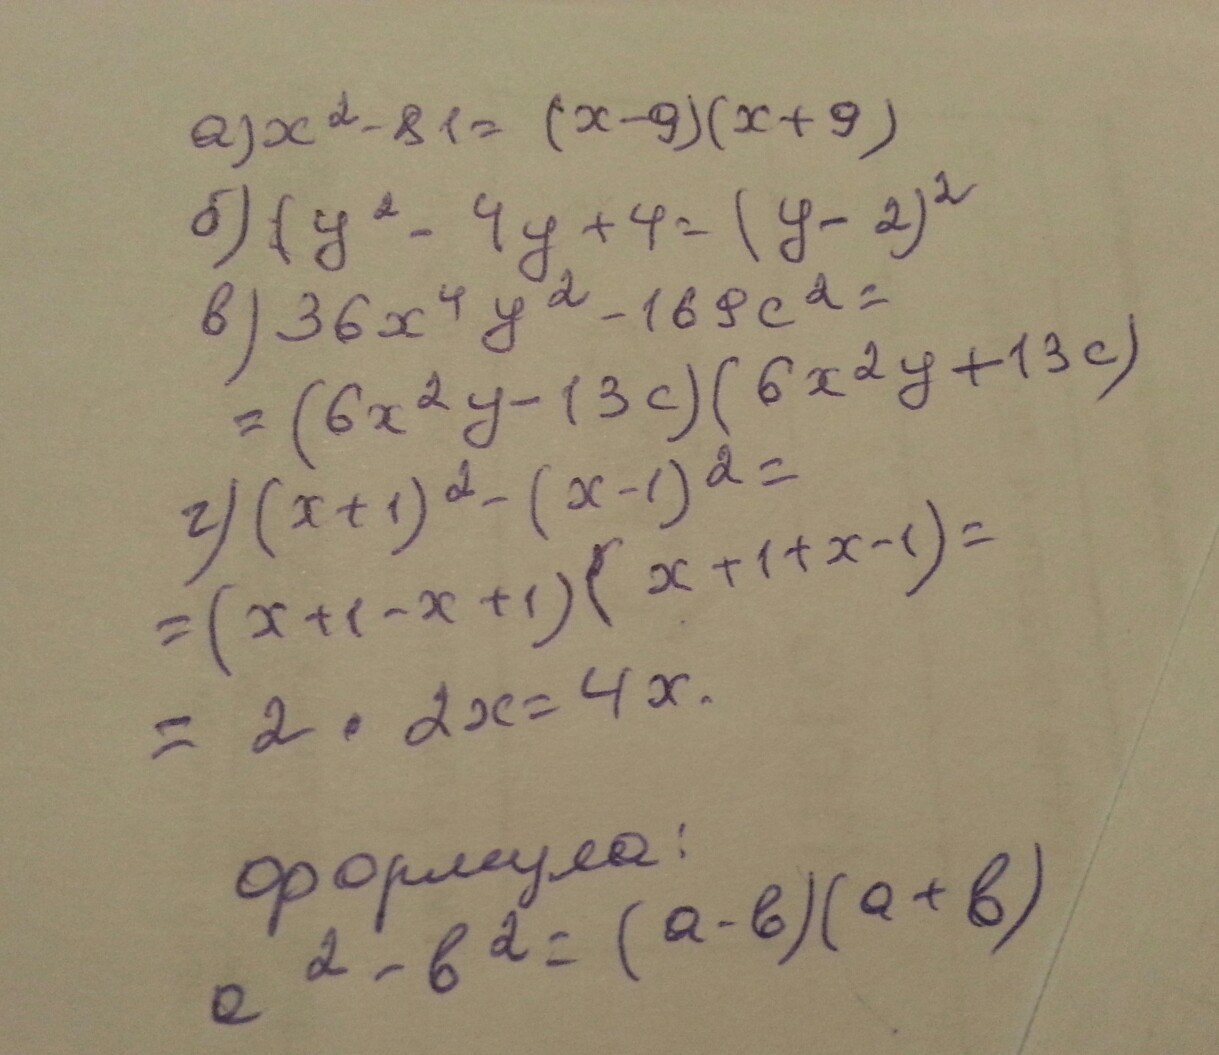 а) x² - 81 = (x-9)(x+9)
б) (y² - 4y + 4 = (y - 2)²
в) 36x⁴y² - 169c² =
= (6x²y - 13c)(6x²y + 13c)
г) (x+1)² - (x-1)² =
= (x+1-x+1)(x+1+x-1) =
= 2 · 2x = 4x.
формула:
a² - b² = (a-b)(a+b)